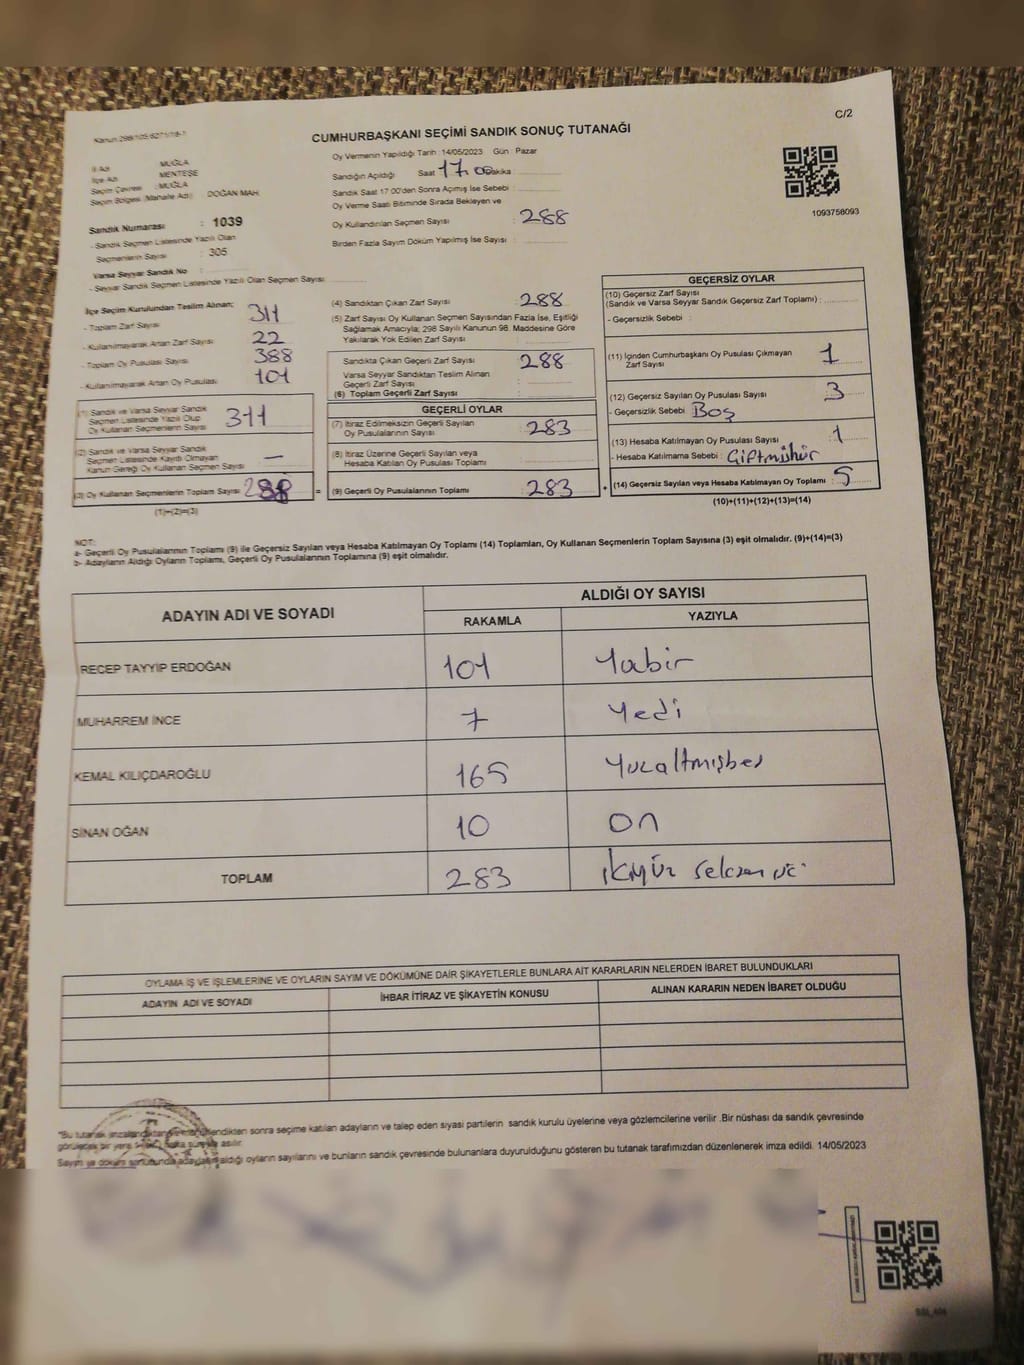 Kanun 298/105;6271/18-1
C/2
CUMHURBAŞKANI SEÇİMİ SANDIK SONUÇ TUTANAĞI
İl Adı : MUĞLA
İlçe Adı : MENTEŞE
Seçim Çevresi : MUĞLA
Seçim Bölgesi (Mahalle Adı) : DOĞAN MAH.
Sandık Numarası : 1039
- Sandık Seçmen Listesinde Yazılı Olan
Seçmenlerin Sayısı : 305
Varsa Seyyar Sandık No :
- Seyyar Sandık Seçmen Listesinde Yazılı Olan Seçmen Sayısı :
Oy Vermenin Yapıldığı Tarih : 14/05/2023 Gün : Pazar
Sandığın Açıldığı Saat 17 00 Dakika :
Sandık Saat 17:00'den Sonra Açılmış İse Sebebi :
Oy Verme Saati Bitiminde Sırada Bekleyen ve
Oy Kullandırılan Seçmen Sayısı : 288
Birden Fazla Sayım Döküm Yapılmış İse Sayısı :
1093758093
İlçe Seçim Kurulundan Teslim Alınan;
- Toplam Zarf Sayısı 311
- Kullanılmayarak Artan Zarf Sayısı 22
- Toplam Oy Pusulası Sayısı 388
- Kullanılmayarak Artan Oy Pusulası 101
(1) Sandık ve Varsa Seyyar Sandık
Seçmen Listesinde Yazılı Olup
Oy Kullanan Seçmenlerin Sayısı 311
(2) Sandık ve Varsa Seyyar Sandık
Seçmen Listesinde Kayıtlı Olmayan
Kanun Gereği Oy Kullanan Seçmen Sayısı : —
(3) Oy Kullanan Seçmenlerin Toplam Sayısı : 288
(1)+(2)=(3)
(4) Sandıktan Çıkan Zarf Sayısı : 288
(5) Zarf Sayısı Oy Kullanan Seçmen Sayısından Fazla İse, Eşitliği
Sağlamak Amacıyla; 298 Sayılı Kanunun 98. Maddesine Göre
Yakılarak Yok Edilen Zarf Sayısı :
Sandıkta Çıkan Geçerli Zarf Sayısı : 288
Varsa Seyyar Sandıktan Teslim Alınan
Geçerli Zarf Sayısı :
(6) Toplam Geçerli Zarf Sayısı :
GEÇERLİ OYLAR
(7) İtiraz Edilmeksizin Geçerli Sayılan
Oy Pusulalarının Sayısı : 283
(8) İtiraz Üzerine Geçerli Sayılan veya
Hesaba Katılan Oy Pusulası Toplamı :
= (9) Geçerli Oy Pusulalarının Toplamı : 283 +
GEÇERSİZ OYLAR
(10) Geçersiz Zarf Sayısı
(Sandık ve Varsa Seyyar Sandık Geçersiz Zarf Toplamı) :
- Geçersizlik Sebebi :
(11) İçinden Cumhurbaşkanı Oy Pusulası Çıkmayan
Zarf Sayısı : 1
(12) Geçersiz Sayılan Oy Pusulası Sayısı : 3
- Geçersizlik Sebebi : Boş
(13) Hesaba Katılmayan Oy Pusulası Sayısı : 1
- Hesaba Katılmama Sebebi : Çiftmühür
(14) Geçersiz Sayılan veya Hesaba Katılmayan Oy Toplamı : 5
(10)+(11)+(12)+(13)=(14)
NOT:
a- Geçerli Oy Pusulalarının Toplamı (9) ile Geçersiz Sayılan veya Hesaba Katılmayan Oy Toplamı (14) Toplamları, Oy Kullanan Seçmenlerin Toplam Sayısına (3) eşit olmalıdır. (9)+(14)=(3)
b- Adayların Aldığı Oyların Toplamı, Geçerli Oy Pusulalarının Toplamına (9) eşit olmalıdır.
ADAYIN ADI VE SOYADI
ALDIĞI OY SAYISI
RAKAMLA YAZIYLA
RECEP TAYYİP ERDOĞAN 101 Yübir
MUHARREM İNCE 7 Yedi
KEMAL KILIÇDAROĞLU 165 Yüzaltmışbeş
SİNAN OĞAN 10 On
TOPLAM 283 ikiyüz seksen üç
OYLAMA İŞ VE İŞLEMLERİNE VE OYLARIN SAYIM VE DÖKÜMÜNE DAİR ŞİKAYETLERLE BUNLARA AİT KARARLARIN NELERDEN İBARET BULUNDUKLARI
ADAYIN ADI VE SOYADI İHBAR İTİRAZ VE ŞİKAYETİN KONUSU ALINAN KARARIN NEDEN İBARET OLDUĞU
"Bu tutanak sonra seçime katılan adayların ve talep eden siyasi partilerin sandık kurulu üyelerine veya gözlemcilerine verilir .Bir nüshası da sandık çevresinde
görülecek bir yere asılır.
Sayım ve döküm sonucunda adayların aldığı oyların sayılarını ve bunların sandık çevresinde bulunanlara duyurulduğunu gösteren bu tutanak tarafımızdan düzenlenerek imza edildi. 14/05/2023